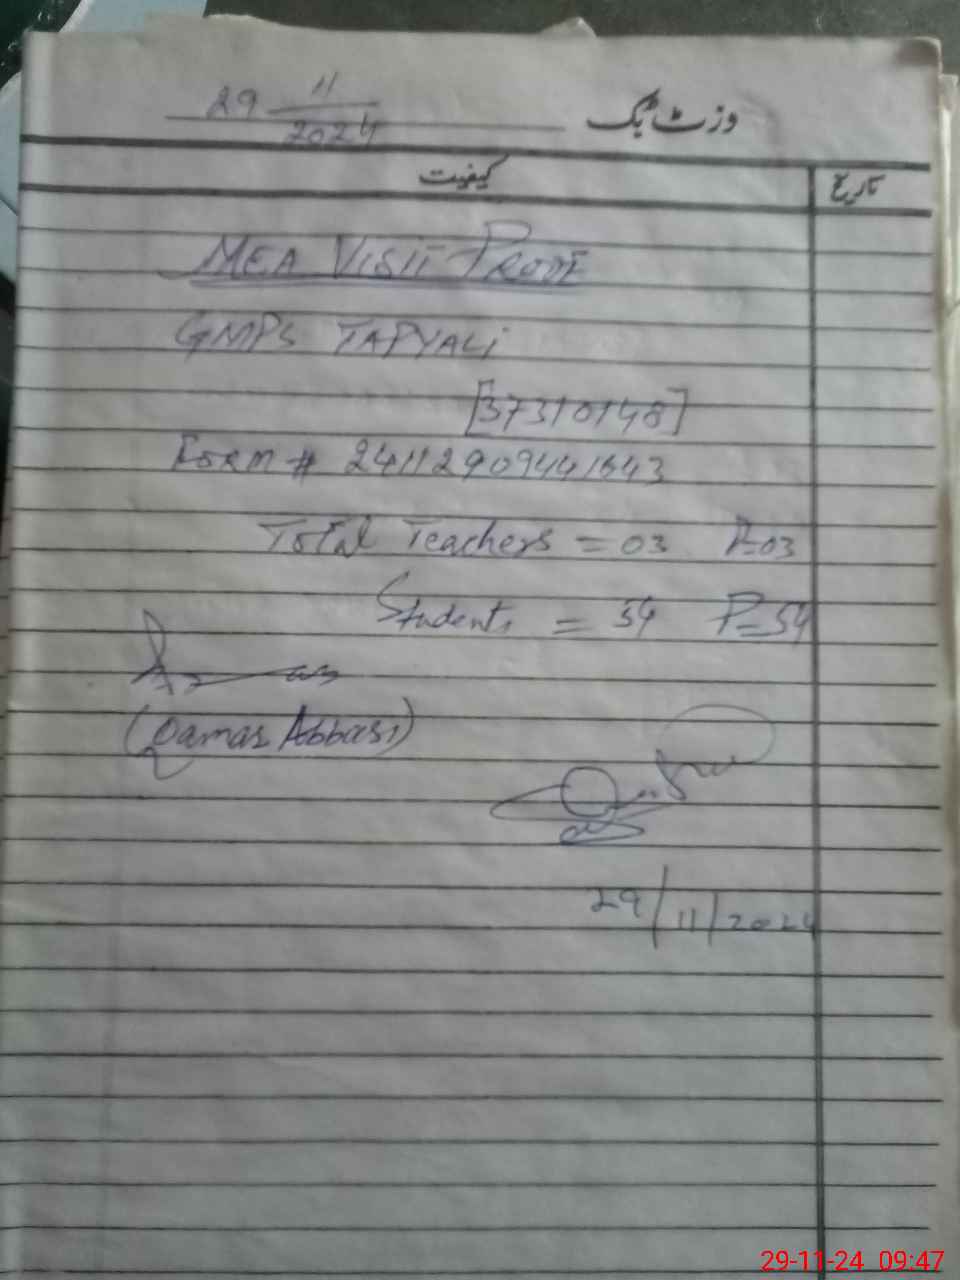 وزٹ بک
29 11/2024
تاریخ کیفیت
MEA VISIT PROOF
GMPS TAPYALI
[37310148]
FORM # 24112909441643
Total Teachers = 03 P=03
Students = 54 P=54
(Qamar Abbasi)
29/11/2024
29-11-24 09:47